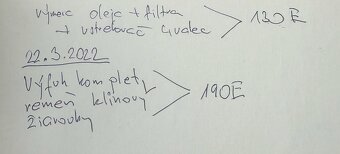 výmena oleja + filtra
→ vstrekovač 4 valec > 130 E
22.3.2022
Výfuk komplet,
remeň klinový > 190E
žiarovky